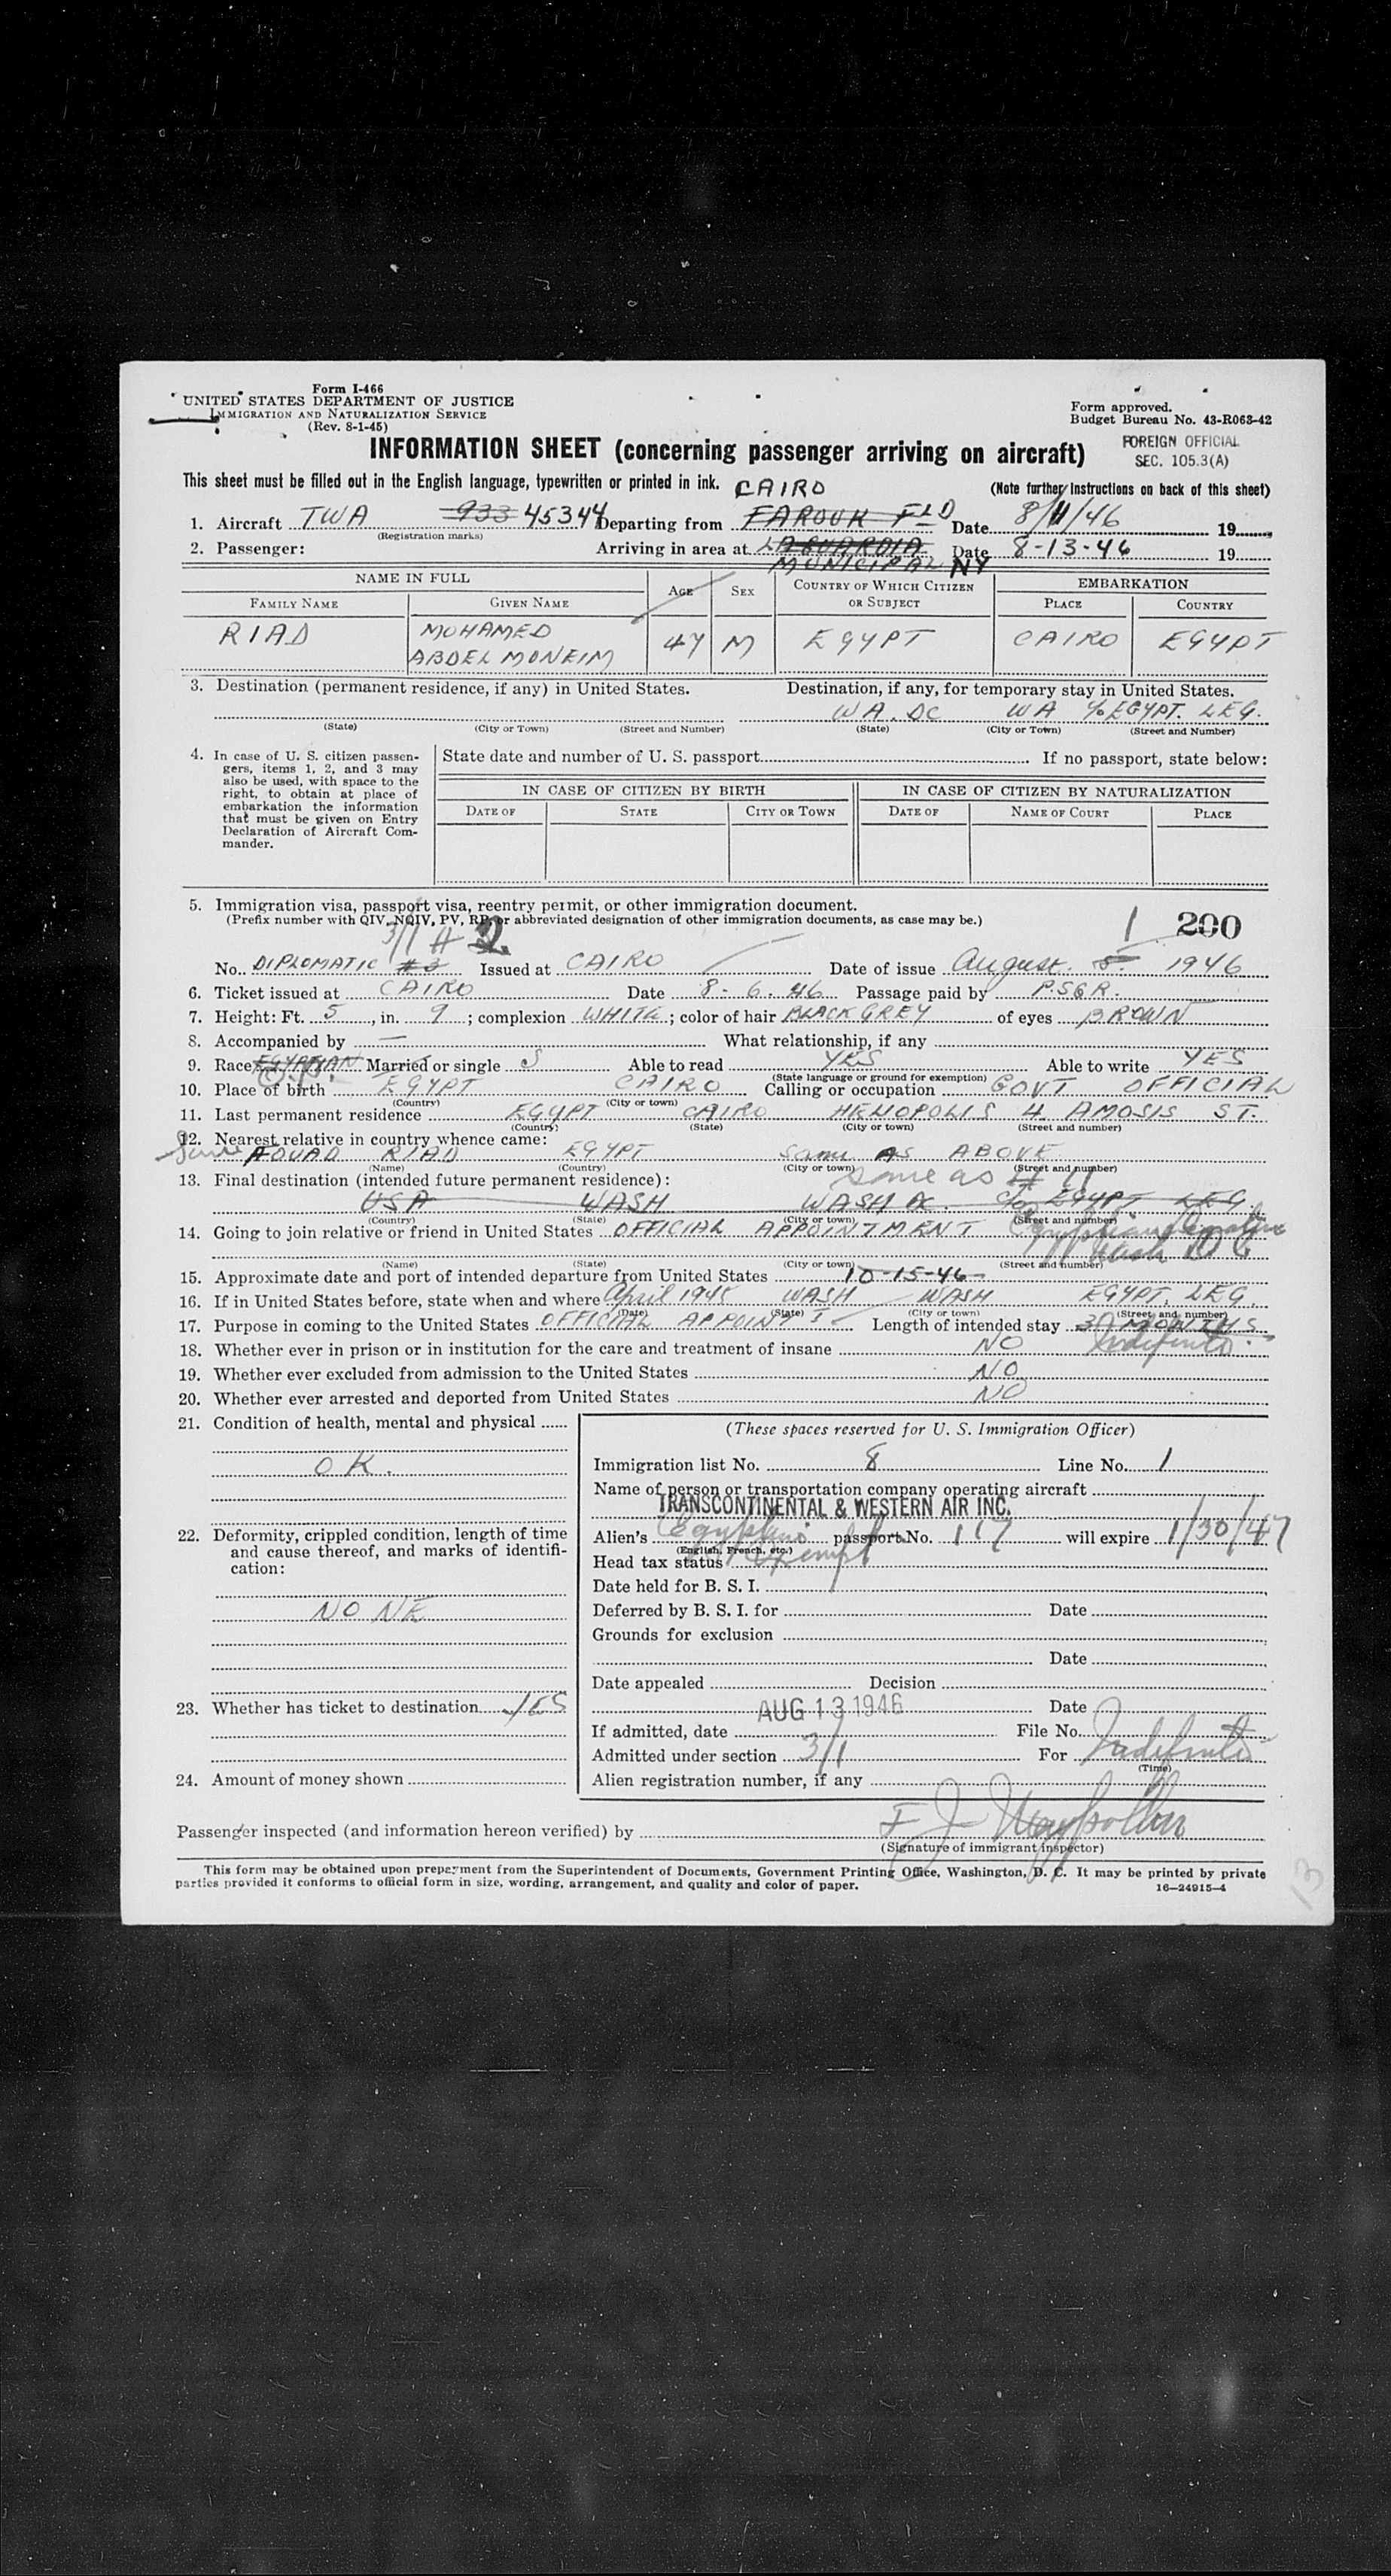 Form I-466
UNITED STATES DEPARTMENT OF JUSTICE
IMMIGRATION AND NATURALIZATION SERVICE
(Rev. 8-1-45)
Form approved.
Budget Bureau No. 43-R063-42
INFORMATION SHEET (concerning passenger arriving on aircraft)
FOREIGN OFFICIAL
SEC. 105.3(A)
This sheet must be filled out in the English language, typewritten or printed in ink.
(Note further instructions on back of this sheet)
CAIRO
1. Aircraft TWA 933 45344 Departing from FAROUK FLD Date 8/11/46 19
(Registration marks)
2. Passenger: Arriving in area at LAGUARDIA Date 8-13-46 19
MUNICIPAL NY
NAME IN FULL AGE SEX COUNTRY OF WHICH CITIZEN OR SUBJECT EMBARKATION
FAMILY NAME GIVEN NAME PLACE COUNTRY
RIAD MOHAMED ABDEL MONEIM 47 M EGYPT CAIRO EGYPT
3. Destination (permanent residence, if any) in United States. Destination, if any, for temporary stay in United States.
WA. DC WA % EGYPT. LEG.
(State) (City or Town) (Street and Number) (State) (City or Town) (Street and Number)
4. In case of U. S. citizen passengers, items 1, 2, and 3 may also be used, with space to the right, to obtain at place of embarkation the information that must be given on Entry Declaration of Aircraft Commander.
State date and number of U. S. passport If no passport, state below:
IN CASE OF CITIZEN BY BIRTH IN CASE OF CITIZEN BY NATURALIZATION
DATE OF STATE CITY OR TOWN DATE OF NAME OF COURT PLACE
5. Immigration visa, passport visa, reentry permit, or other immigration document.
(Prefix number with QIV, NQIV, PV, RP, or abbreviated designation of other immigration documents, as case may be.)
3/1 # 2 1 200
No. DIPLOMATIC #3 Issued at CAIRO Date of issue August 5. 1946
6. Ticket issued at CAIRO Date 8-6.46 Passage paid by PSGR.
7. Height: Ft. 5, in. 9; complexion WHITE; color of hair BLACK GREY of eyes BROWN
8. Accompanied by — What relationship, if any
9. Race EGYPTIAN Married or single S Able to read YES Able to write YES
(State language or ground for exemption)
10. Place of birth EGYPT CAIRO Calling or occupation GOVT OFFICIAL
(Country) (City or town)
11. Last permanent residence EGYPT CAIRO HELIOPOLIS 4 AMOSIS ST.
(Country) (State) (City or town) (Street and number)
12. Nearest relative in country whence came:
FOUAD RIAD EGYPT same AS ABOVE
(Name) (Country) (City or town) (Street and number)
13. Final destination (intended future permanent residence): same as # 11
USA WASH WASH DC. c/o EGYPT LEG
(Country) (State) (City or town) (Street and number)
14. Going to join relative or friend in United States OFFICIAL APPOINTMENT Wash D C
(Name) (State) (City or town) (Street and number)
15. Approximate date and port of intended departure from United States 10-15-46
16. If in United States before, state when and where April 1945 WASH WASH EGYPT. LEG.
(Date) (State) (City or town) (Street and number)
17. Purpose in coming to the United States OFFICIAL APPOINT'T Length of intended stay 3 MONTHS
Indefinite
18. Whether ever in prison or in institution for the care and treatment of insane NO
19. Whether ever excluded from admission to the United States NO
20. Whether ever arrested and deported from United States NO
21. Condition of health, mental and physical
OK.
22. Deformity, crippled condition, length of time and cause thereof, and marks of identification:
NONE
23. Whether has ticket to destination YES
24. Amount of money shown
(These spaces reserved for U. S. Immigration Officer)
Immigration list No. 8 Line No. 1
Name of person or transportation company operating aircraft
TRANSCONTINENTAL & WESTERN AIR INC.
Alien's Egyptian passport No. 117 will expire 1/30/47
(English, French, etc.)
Head tax status Exempt
Date held for B. S. I.
Deferred by B. S. I. for Date
Grounds for exclusion
Date
Date appealed Decision
AUG 13 1946 Date
If admitted, date File No.
Admitted under section 3/1 For Indefinite
(Time)
Alien registration number, if any
Passenger inspected (and information hereon verified) by F J
(Signature of immigrant inspector)
This form may be obtained upon prepayment from the Superintendent of Documents, Government Printing Office, Washington, D. C. It may be printed by private
parties provided it conforms to official form in size, wording, arrangement, and quality and color of paper.
16—24915-4
13